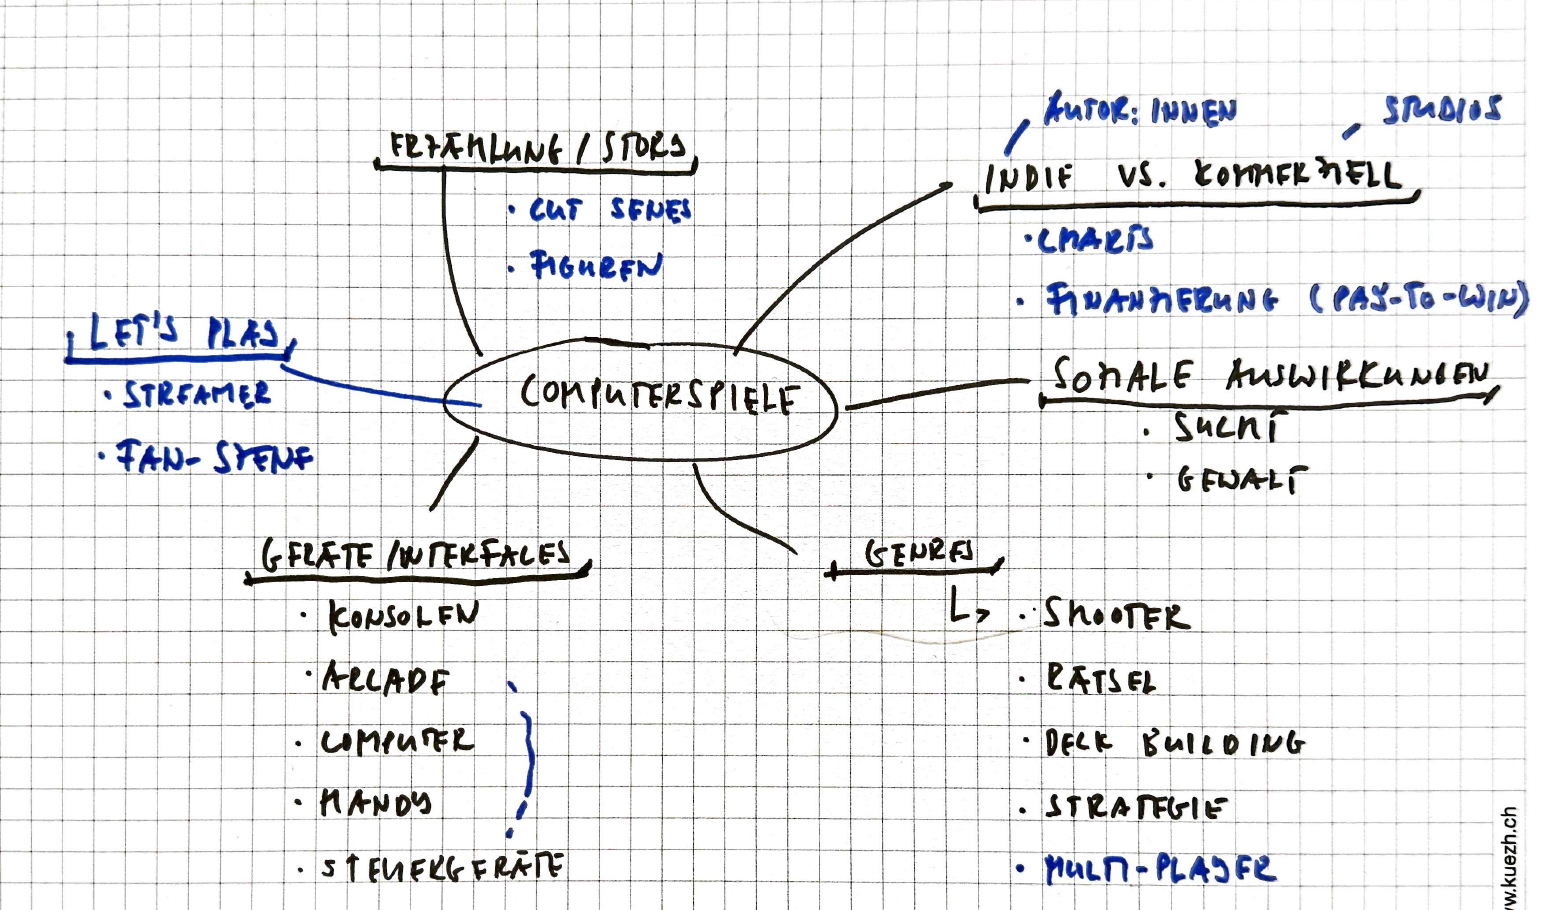 ERZÆHLUNG / STORY
• CUT SENES
• FIGUREN
AUTOR:INNEN
STUDIOS
INDIE VS. KOMMERZIELL
• CHARTS
• FINANZIERUNG (PAY-TO-WIN)
LET'S PLAY
• STREAMER
• FAN-SZENE
COMPUTERSPIELE
SOZIALE AUSWIRKUNGEN
• SUCHT
• GEWALT
GERÆTE/INTERFACES
• KONSOLEN
• ARCADE
• COMPUTER
• HANDY
• STEUERGERÄTE
GENRES
• SHOOTER
• RÄTSEL
• DECK BUILDING
• STRATEGIE
• MULTI-PLAYER
w.kuezh.ch